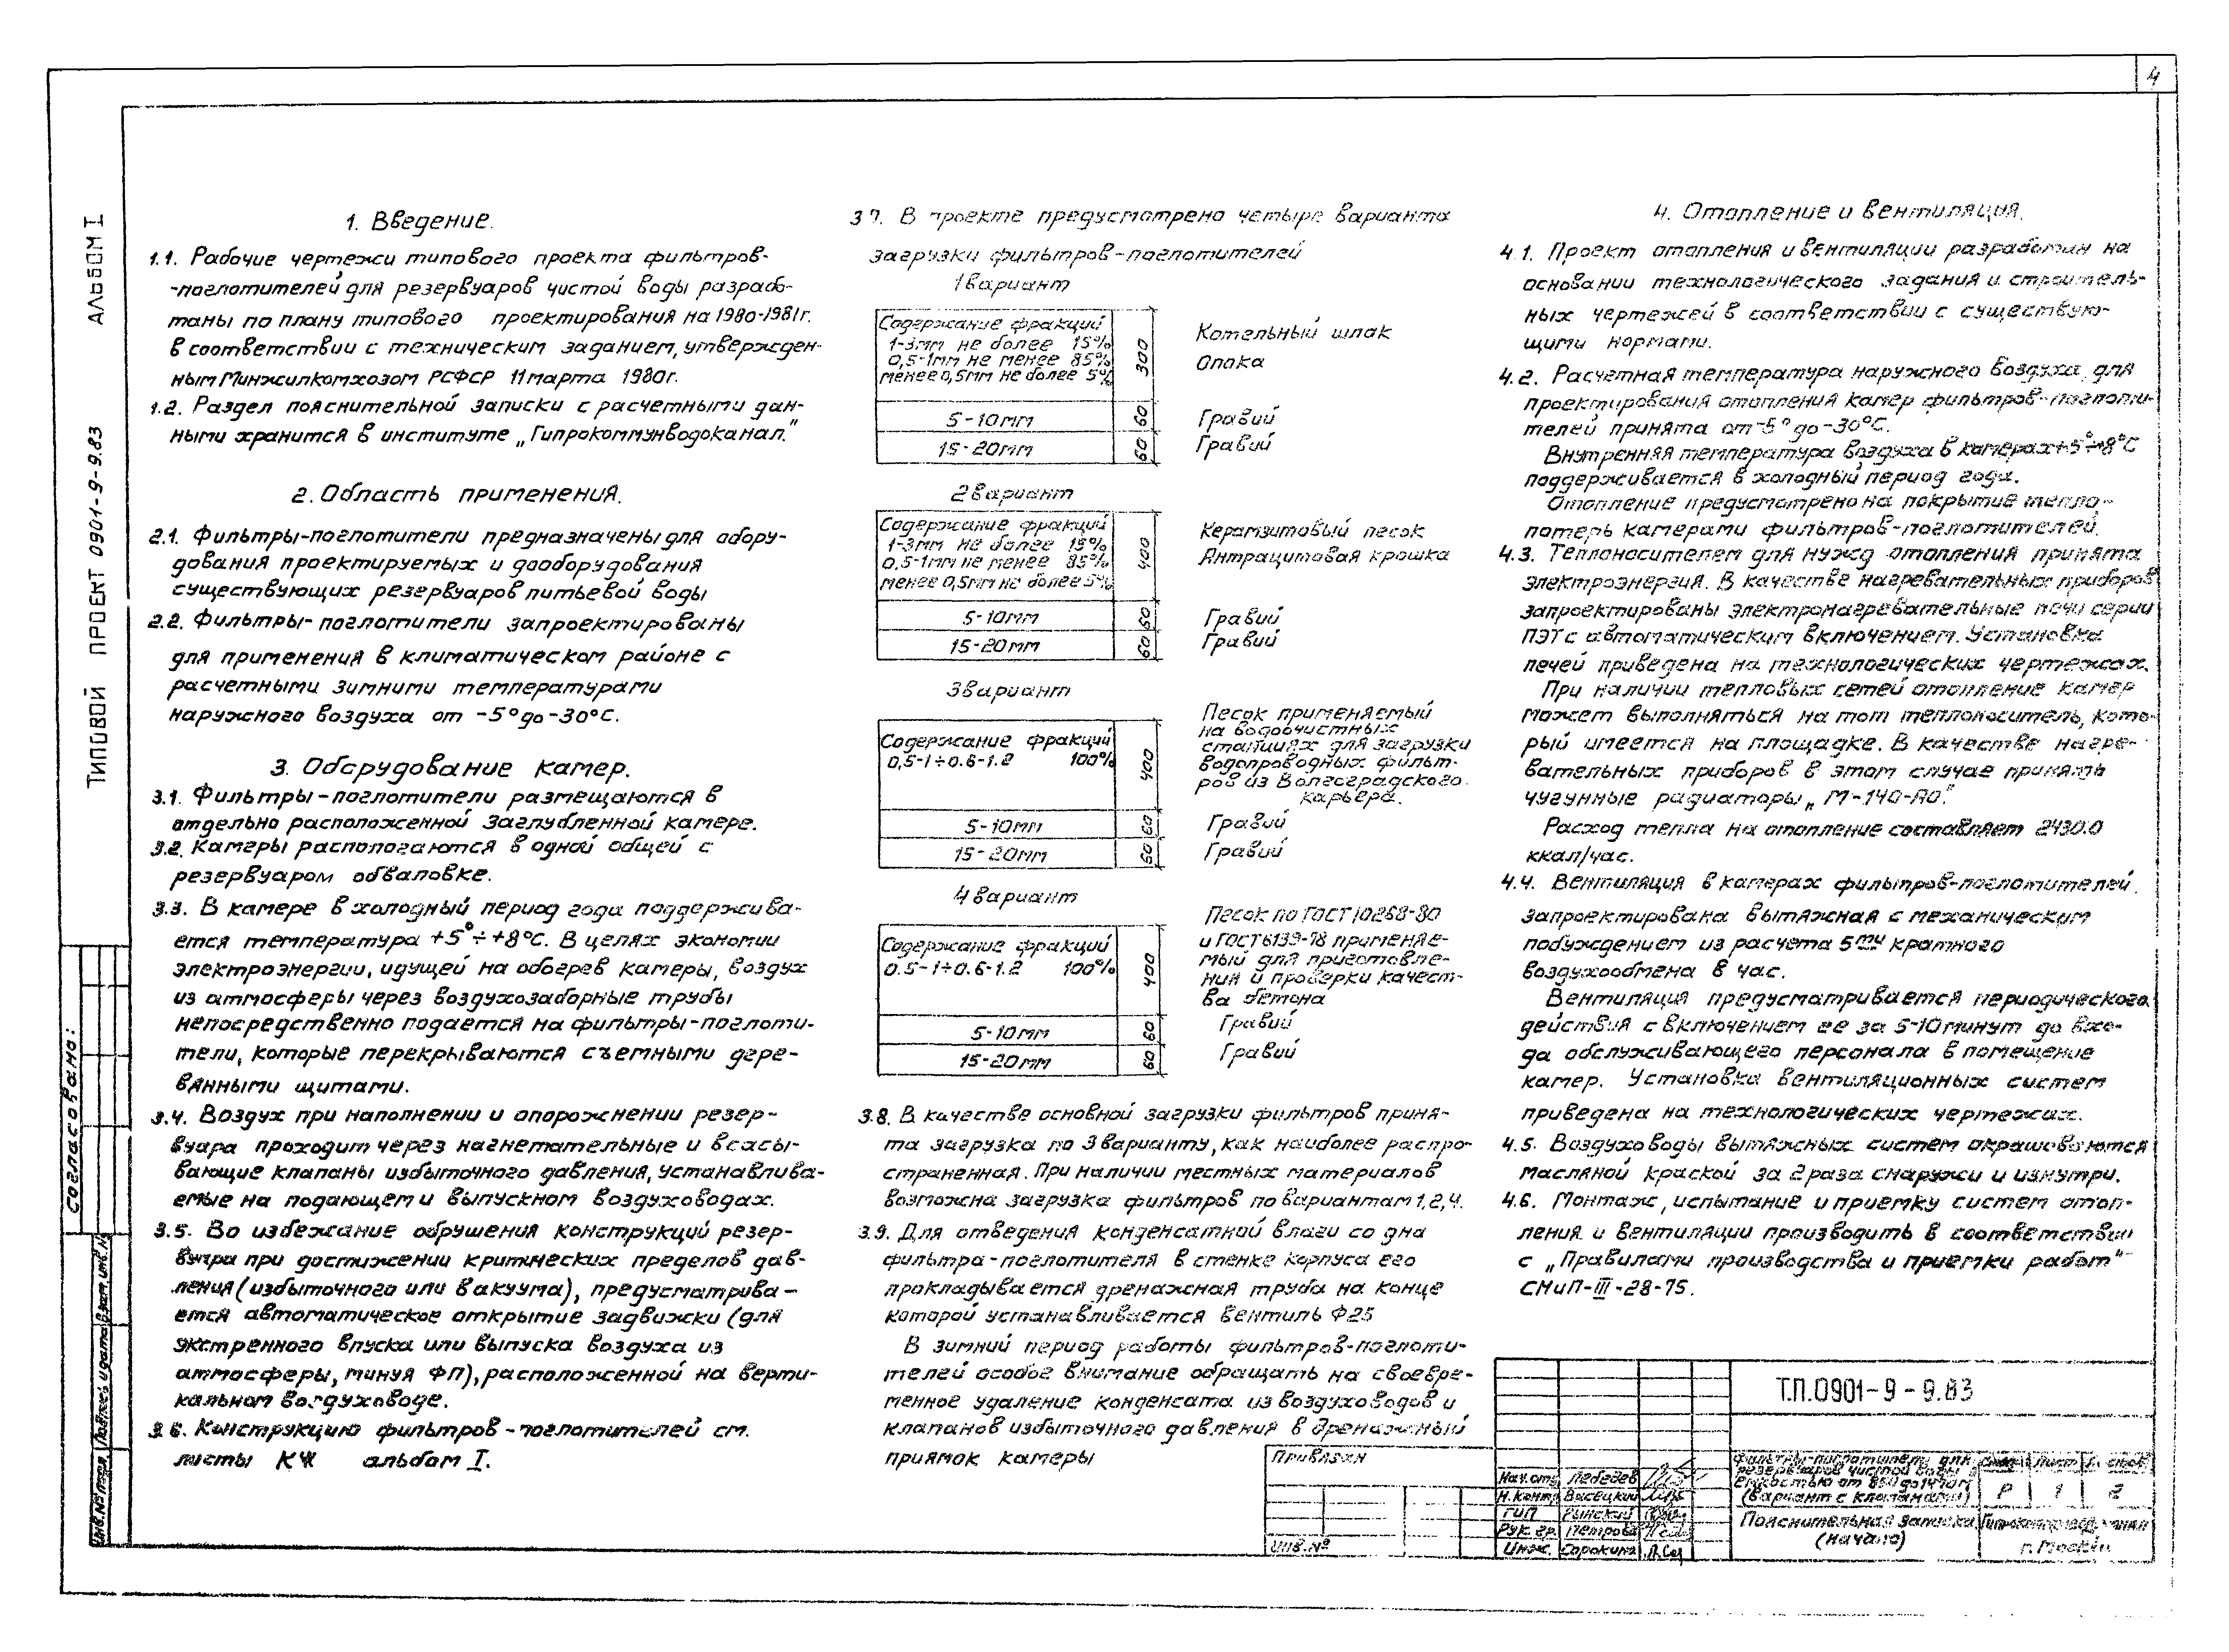 4
АЛЬБОМ I
ТИПОВОЙ ПРОЕКТ 0901-9-9.83
Согласовано:
1. Введение.
1.1. Рабочие чертежи типового проекта фильтров-
-поглотителей для резервуаров чистой воды разрабо-
таны по плану типового проектирования на 1980-1981г.
в соответствии с техническим заданием, утвержден-
ным Минжилкомхозом РСФСР 11 марта 1980г.
1.2. Раздел пояснительной записки с расчетными дан-
ными хранится в институте „Гипрокоммунводоканал."
2. Область применения.
2.1. Фильтры-поглотители предназначены для обору-
дования проектируемых и дооборудования
существующих резервуаров питьевой воды
2.2. Фильтры-поглотители запроектированы
для применения в климатическом районе с
расчетными зимними температурами
наружного воздуха от -5° до -30°С.
3. Оборудование камер.
3.1. Фильтры-поглотители размещаются в
отдельно расположенной заглубленной камере.
3.2. Камеры распологаются в одной общей с
резервуаром обваловке.
3.3. В камере в холодный период года поддержива-
ется температура +5°÷+8°С. В целях экономии
электроэнергии, идущей на обогрев камеры, воздух
из атмосферы через воздухозаборные трубы
непосредственно подается на фильтры-поглоти-
тели, которые перекрываются съемными дере-
вянными щитами.
3.4. Воздух при наполнении и опорожнении резер-
вуара проходит через нагнетательные и всасы-
вающие клапаны избыточного давления, устанавлива-
емые на подающем и выпускном воздуховодах.
3.5. Во избежание обрушения конструкций резер-
вуара при достижении критических пределов дав-
ления (избыточного или вакуума), предусматрива-
ется автоматическое открытие задвижки (для
экстренного впуска или выпуска воздуха из
атмосферы, минуя ФП), расположенной на верти-
кальном воздуховоде.
3.6. Конструкцию фильтров-поглотителей см.
листы КЖ альбом I.
3.7. В проекте предусмотрено четыре варианта
загрузки фильтров-поглотителей
1 вариант
Содержание фракций
1-3мм не более 15%
0,5-1мм не менее 85%
менее 0,5мм не более 5%
300
Котельный шлак
Опока
5-10мм 60 Гравий
15-20мм 60 Гравий
2 вариант
Содержание фракций
1-3мм не более 15%
0,5-1мм не менее 85%
менее 0,5мм не более 5%
400
Керамзитовый песок
Антрацитовая крошка
5-10мм 60 Гравий
15-20мм 60 Гравий
3 вариант
Содержание фракций
0,5-1÷0.6-1.2 100%
400
Песок применяемый
на водоочистных
станциях для загрузки
водопроводных фильт-
ров из Волгоградского
карьера.
5-10мм 60 Гравий
15-20мм 60 Гравий
4 вариант
Содержание фракций
0.5-1÷0.6-1.2 100%
400
Песок по ГОСТ 10268-80
и ГОСТ 6139-78 применяе-
мый для приготовле-
ния и проверки качест-
ва бетона
5-10мм 60 Гравий
15-20мм 60 Гравий
3.8. В качестве основной загрузки фильтров приня-
та загрузка по 3 варианту, как наиболее распро-
страненная. При наличии местных материалов
возможна загрузка фильтров по вариантам 1,2,4.
3.9. Для отведения конденсатной влаги со дна
фильтра-поглотителя в стенке корпуса его
прокладывается дренажная труба на конце
которой устанавливается вентиль Ф25
В зимний период работы фильтров-поглоти-
телей особое внимание обращать на своевре-
менное удаление конденсата из воздуховодов и
клапанов избыточного давления в дренажный
приямок камеры
4. Отопление и вентиляция.
4.1. Проект отопления и вентиляции разработан на
основании технологического задания и строитель-
ных чертежей в соответствии с существую-
щими нормами.
4.2. Расчетная температура наружного воздуха, для
проектирования отопления камер фильтров-поглоти-
телей принята от -5° до -30°С.
Внутренняя температура воздуха в камерах +5°÷+8°С
поддерживается в холодный период года.
Отопление предусмотрено на покрытие тепло-
потерь камерами фильтров-поглотителей.
4.3. Теплоносителем для нужд отопления принята
электроэнергия. В качестве нагревательных приборов
запроектированы электронагревательные печи серии
ПЭТ с автоматическим включением. Установка
печей приведена на технологических чертежах.
При наличии тепловых сетей отопление камер
может выполняться на том теплоноситель, кото-
рый имеется на площадке. В качестве нагре-
вательных приборов в этом случае принять
чугунные радиаторы „М-140-АО."
Расход тепла на отопление составляет 2430.0
ккал/час.
4.4. Вентиляция в камерах фильтров-поглотителей
запроектирована вытяжная с механическим
побуждением из расчета 5ти кратного
воздухообмена в час.
Вентиляция предусматривается периодического
действия с включением ее за 5-10 минут до вхо-
да обслуживающего персонала в помещение
камер. Установка вентиляционных систем
приведена на технологических чертежах.
4.5. Воздуховоды вытяжных систем окрашиваются
масляной краской за 2 раза снаружи и изнутри.
4.6. Монтаж, испытание и приемку систем отоп-
ления и вентиляции производить в соответствии
с „Правилами производства и приемки работ"
СНиП-III-28-75.
Привязан
Инв.№
Т.П.0901-9-9.83
Нач.отд. Лебедев
Н.контр. Висецкий
ГИП Рынский
Рук.гр. Петрова
Инж. Сорокина
Фильтры-поглотители для
резервуаров чистой воды
(вариант с клапанами)
Лист
Р 1 2
Пояснительная записка
(начало)
г. Москва
Взам.инв.№
Подпись и дата
Инв.№ подл.